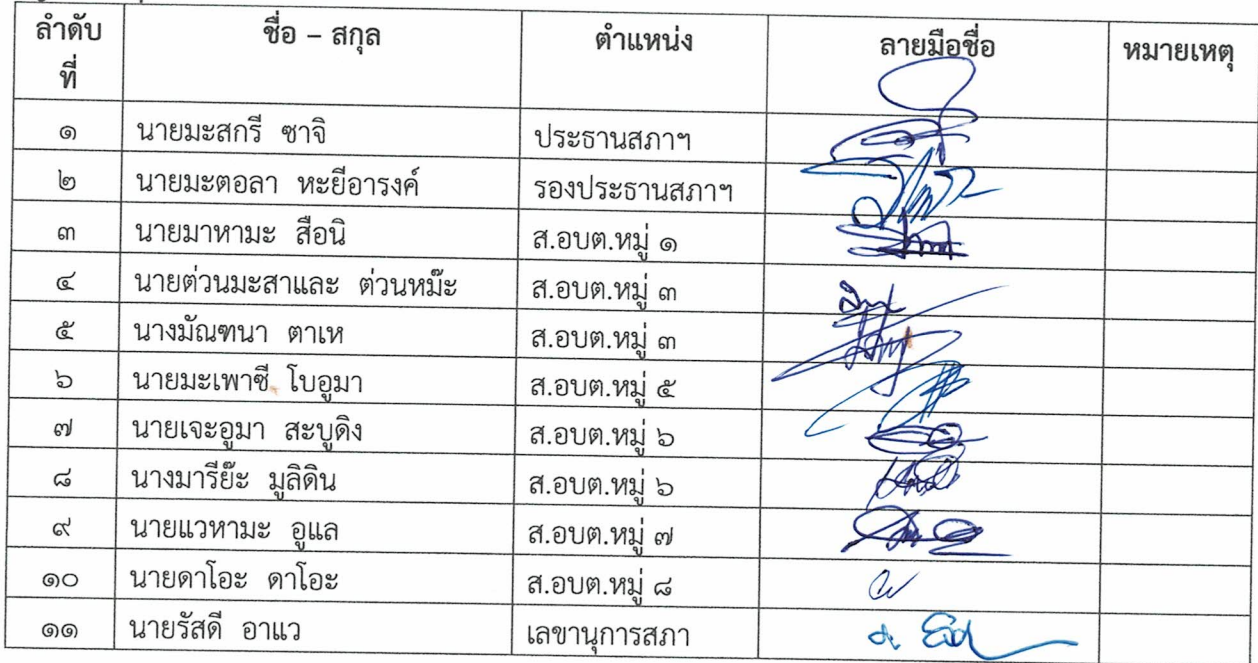 ลำดับที่ ชื่อ – สกุล ตำแหน่ง ลายมือชื่อ หมายเหตุ
๑ นายมะสกรี ซาจิ ประธานสภาฯ
๒ นายมะตอลา หะยีอารงค์ รองประธานสภาฯ
๓ นายมาหามะ สือนิ ส.อบต.หมู่ ๑
๔ นายต่วนมะสาและ ต่วนหม๊ะ ส.อบต.หมู่ ๓
๕ นางมัณฑนา ตาเห ส.อบต.หมู่ ๓
๖ นายมะเพาซี โบอูมา ส.อบต.หมู่ ๕
๗ นายเจะอูมา สะบูดิง ส.อบต.หมู่ ๖
๘ นางมารีย๊ะ มูลิดิน ส.อบต.หมู่ ๖
๙ นายแวหามะ อูแล ส.อบต.หมู่ ๗
๑๐ นายดาโอะ ดาโอะ ส.อบต.หมู่ ๘
๑๑ นายรัสดี อาแว เลขานุการสภา